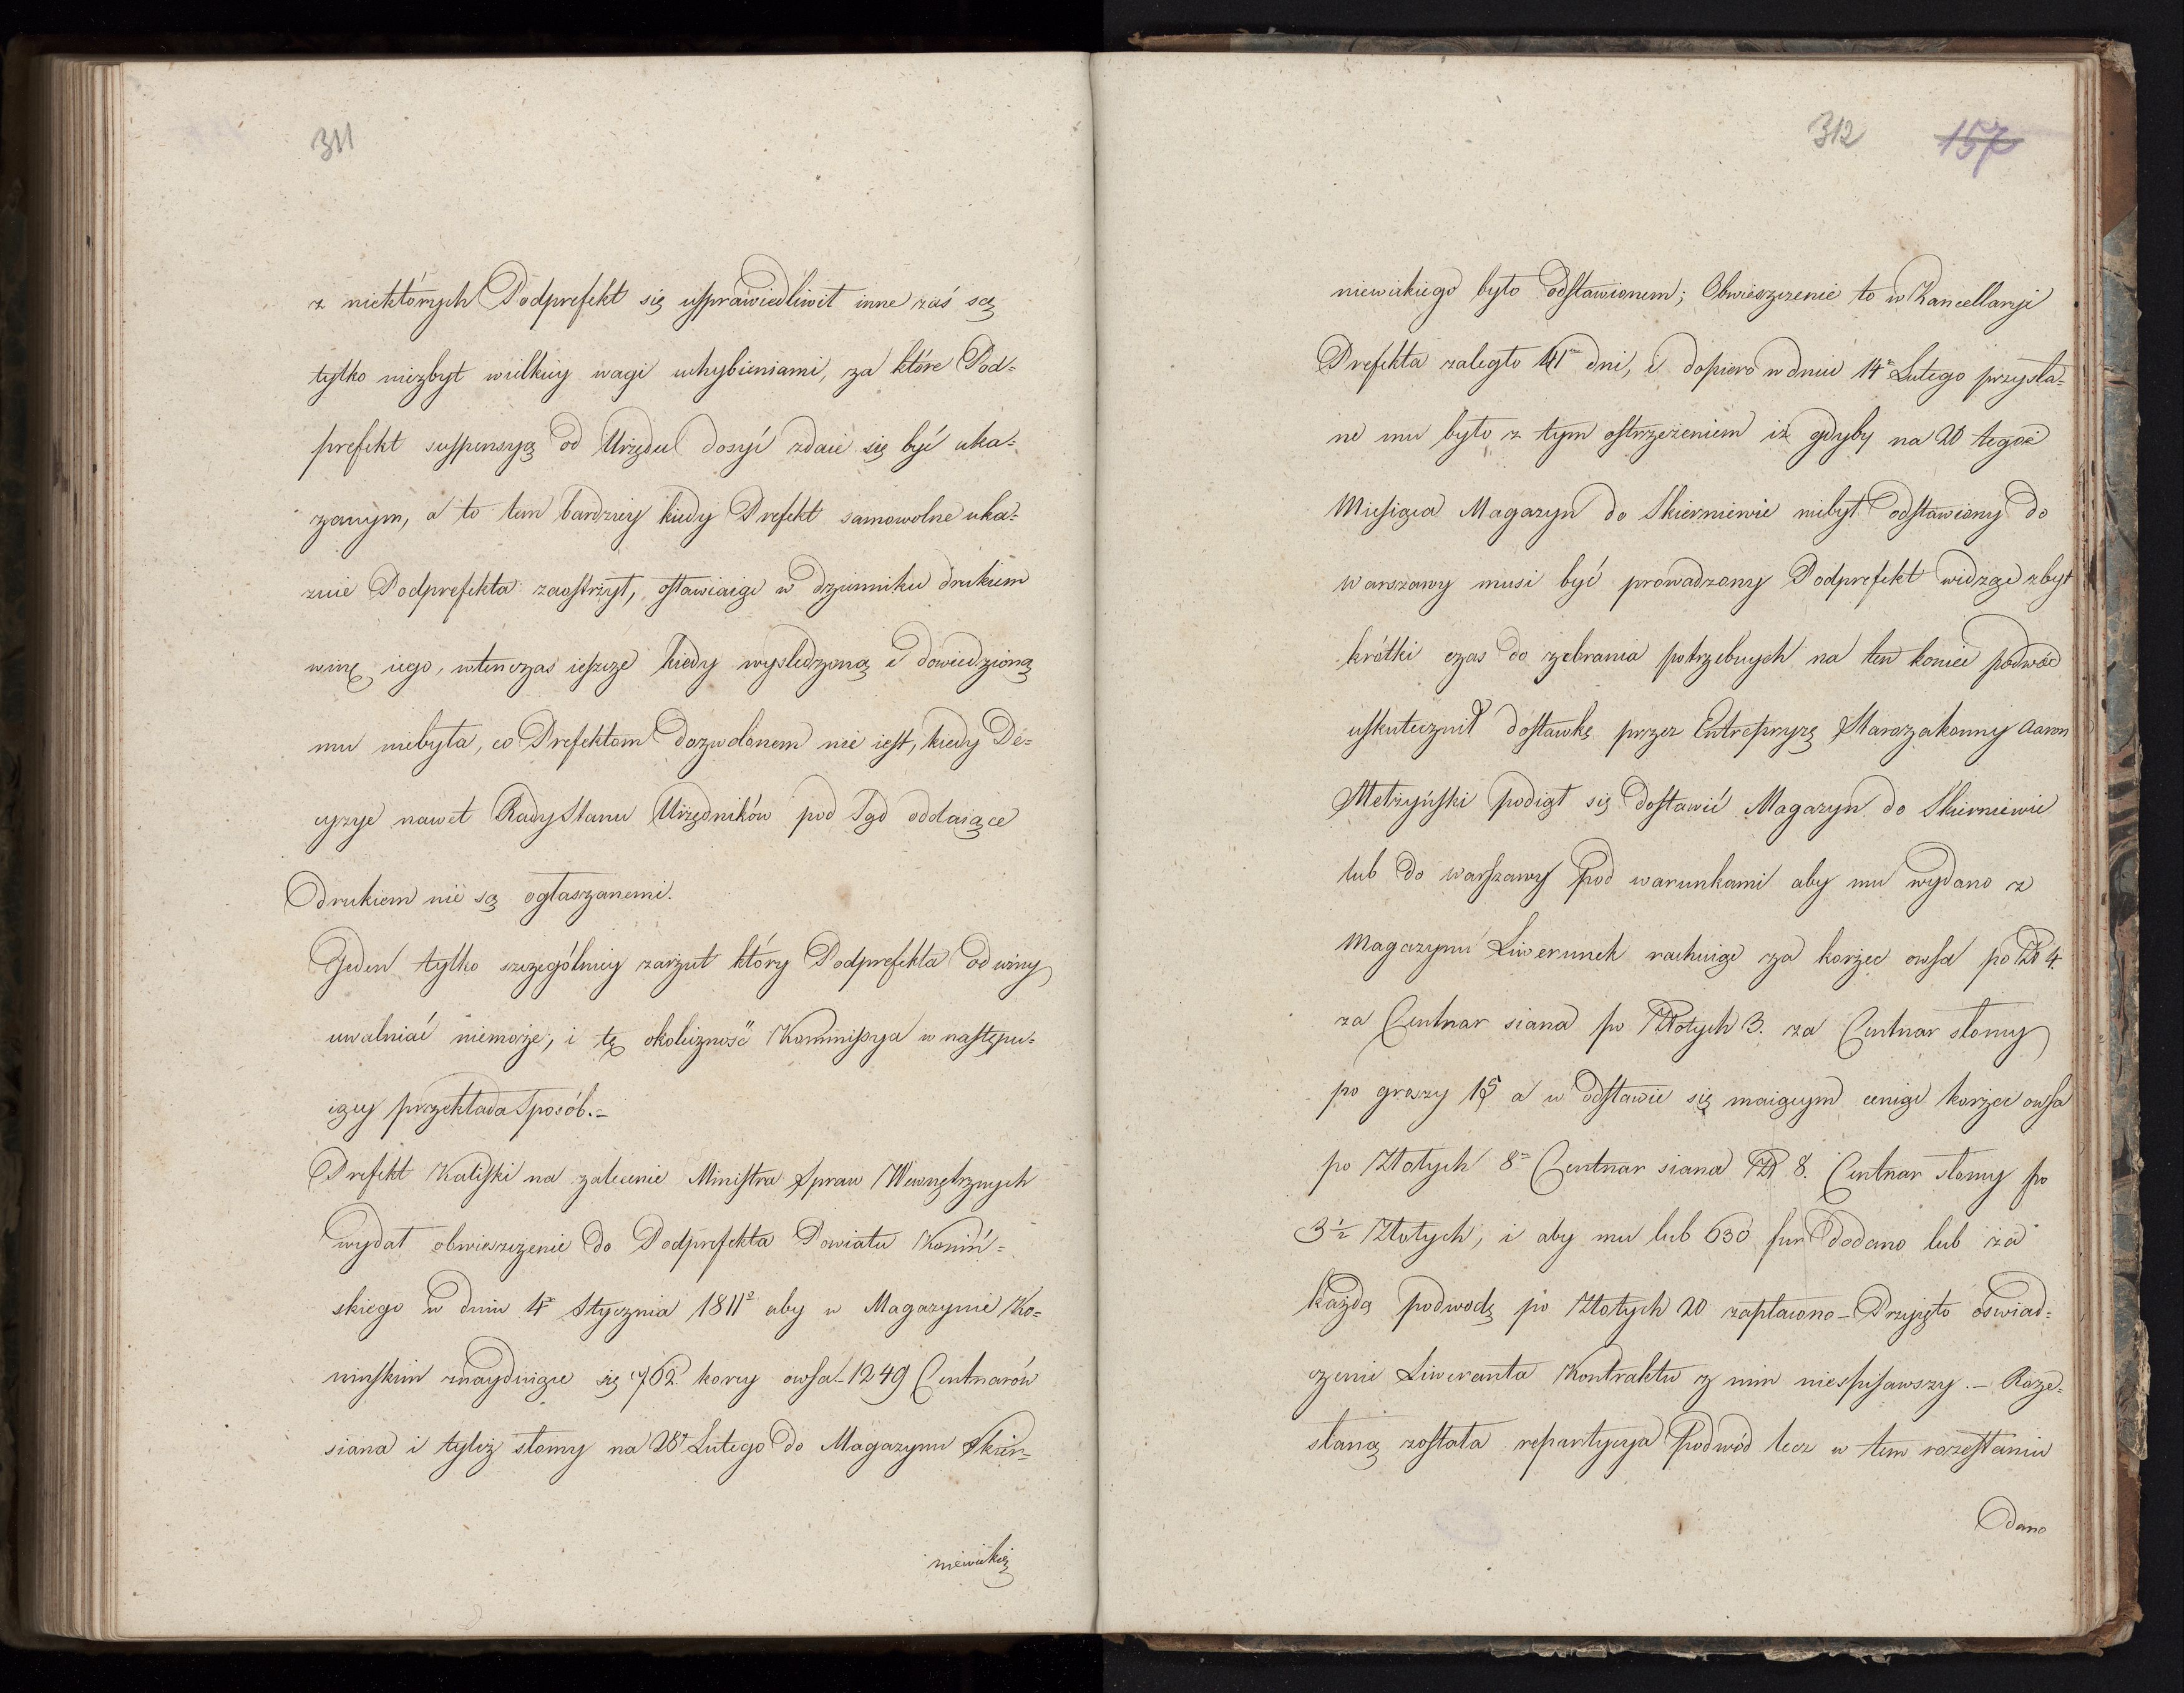 311
z niektórych Podprefekt się usprawiedliwił inne zaś są
tylko niezbyt wielkiey wagi uchybieniami, za które Pod=
prefekt suspensyą od Urzędu dosyć zdaie się być uka=
zanym, a to tem bardziey kiedy Prefekt samowolne uka=
znie Podprefekta zaostrzył, ostawiaiąc w dzienniku drukiem
winę iego, wtenczas ieszcze kiedy wysledzoną i dowiedzioną
mu niebyła, co Prefektom dozwolonem nie iest, kiedy De=
cyzye nawet Rady Stanu Urzędników pod Sąd oddaiące
drukiem nie są ogłaszanemi.
Jeden tylko szczególniey zarzut który Podprefekta od winy
uwalniać niemoże, i tę okoliczność Kommissya w następu=
iący przekłada Sposób.=
Prefekt Kaliski na zalecenie Ministra Spraw Wewnętrznych
wydał obwieszczenie do Podprefekta Powiatu Koniń=
skiego w dniu 4º Stycznia 1811º aby w Magazynie Ko=
ninskim znayduiące się 762. korcy owsa - 1249 Centnarów
siana i tyleż słomy na 28º Lutego do Magazynu Skier=
niewickie
312 157
niewickiego było odstawionem; Obwieszczenie to w Kancellaryi
Prefekta zaległo 41 dni, i dopiero w dniu 14º Lutego przysła=
ne mu było z tym ostrzeżeniem iż gdyby na 20 tegoż
Miesiąca Magazyn do Skierniewic niebył odstawiony do
Warszawy musi być prowadzony Podprefekt widząc zbyt
krótki czas do zebrania potrzebnych na ten koniec podwód
uskutecznił dostawkę przez Entrepryzę Starozakonny Aaron
Metrzyński podiął się dostawić Magazyn do Skierniewic
lub do Warszawy pod warunkami aby mu wydano z
Magazynu Liwerunek rachuiąc za korzec owsa po Zł 4.
za Centnar siana po Złotych 3. za Centnar słomy
po groszy 15 a w odstawie się maiącym ceniąc korzec owsa
po Złotych 8= Centnar siana Zł 8. Centnar słomy po
3½ Złotych, i aby mu lub 630 fur dodano lub za
każdą podwodę po Złotych 20 zapłacono - Przyięto oświad=
czenie Liweranta Kontraktu z nim niespisawszy. - Roze=
słaną została repartycya Podwód lecz w tem rozesłaniu
dano